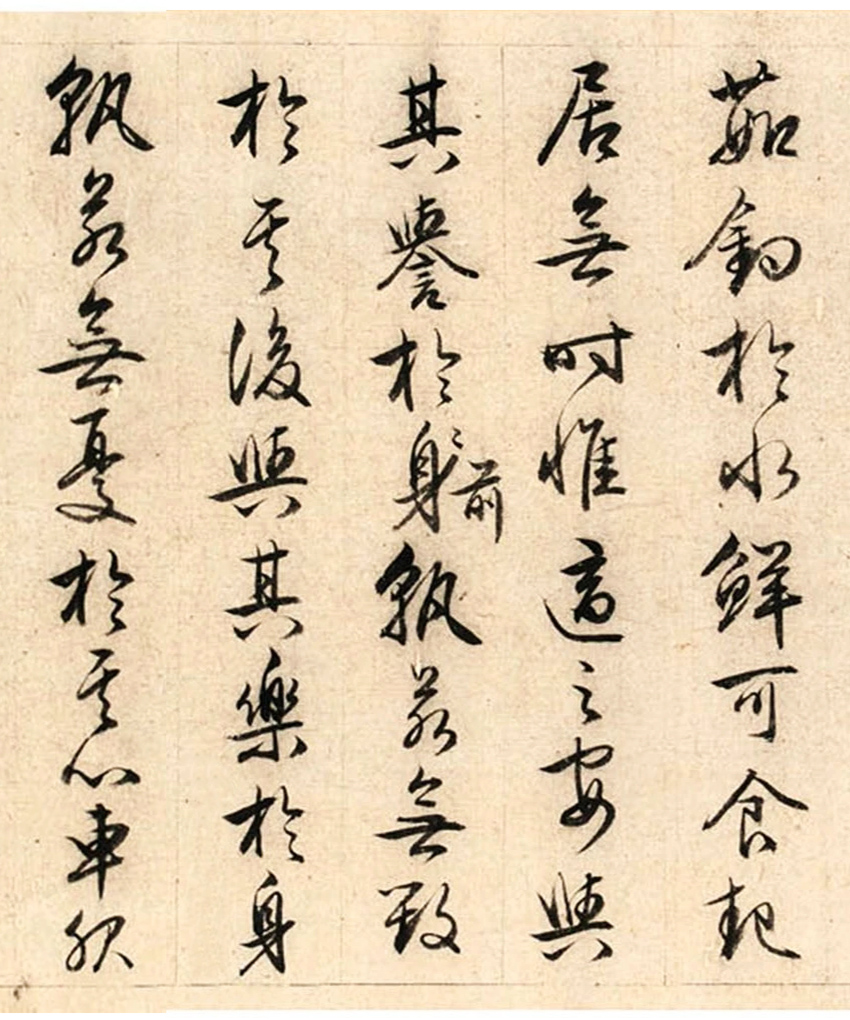 茹釣於水鮮可食起
居無时惟適之安與
其譽於身前孰若無毀
於其後與其樂於身
孰若無憂於其心車服